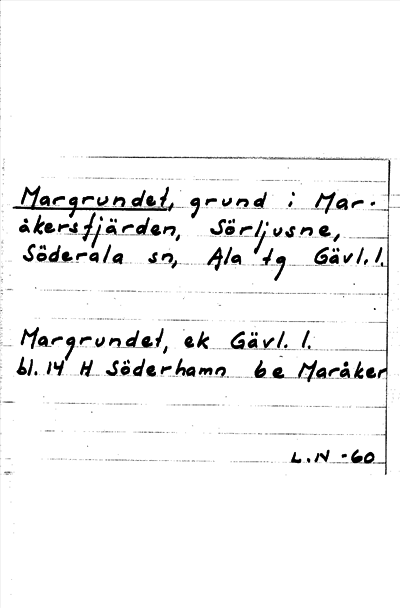 Margrundet, grund i Mar-
åkersfjärden, Sörljusne,
Söderala sn, Ala tg Gävl. l.
Margrundet, ek Gävl. l.
bl. 14 H Söderhamn 6 e Maråker
L. N -60